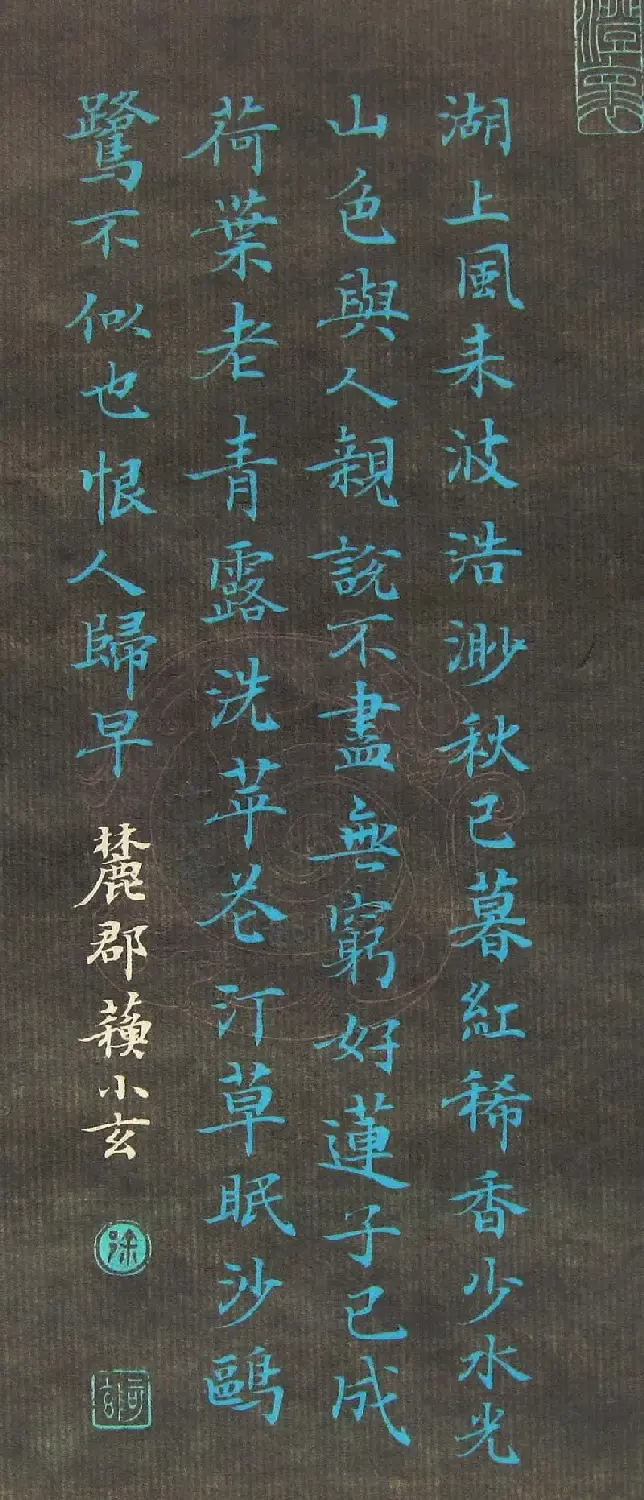 湖上風来波浩渺秋已暮紅稀香少水光
山色與人親說不盡無窮好蓮子已成
荷葉老青露洗苹花汀草眠沙鷗
鷺不似也恨人歸早
麓郡小玄
徐